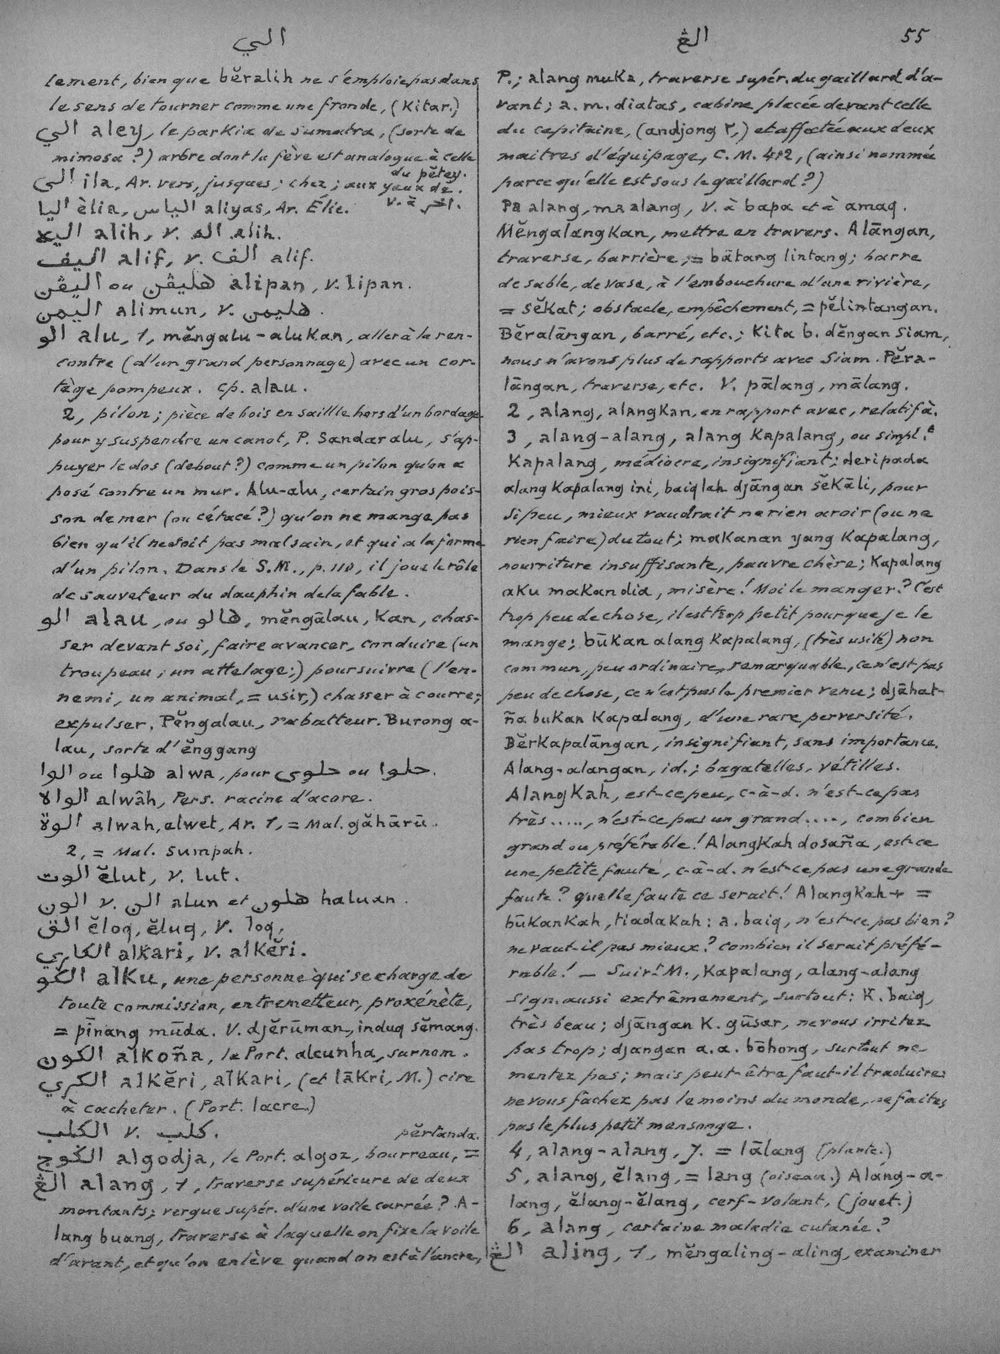 الي
الڠ
55
lement, bien que bĕralih ne s'emploie pas dans
le sens de tourner comme une fronde, (Kitar.)
الي aley, le parkia de Sumatra, (sorte de
mimosa ?) arbre dont la fève est analogue à celle
du pĕtey.
الي ila, Ar. vers, jusques; chez; aux yeux de.
v. à اخر.
اليا èlia, الياس aliyas, Ar. Élie.
اليه alih, v. اله alih.
اليف alif, v. الف alif.
اليڤن ou هليڤن alipan, v. lipan.
اليمن alimun, v. هليمن.
الو alu, 1, mĕngalu-alukan, aller à la ren-
contre (d'un grand personnage) avec un cor-
tège pompeux. cp. alau.
2, pilon; pièce de bois en saillie hors d'un bordage
pour y suspendre un canot, P. Sandar alu, s'ap-
puyer le dos (debout?) comme un pilon qu'on a
posé contre un mur. Alu-alu, certain gros pois-
son de mer (ou cétacé?) qu'on ne mange pas
bien qu'il ne soit pas malsain, et qui a la forme
d'un pilon. Dans le S.M., p. 110, il joue le rôle
de sauveteur du dauphin de la fable.
الو alau, ou هالو, mĕngālau, kan, chas-
ser devant soi, faire avancer, conduire (un
troupeau; un attelage;) poursuivre (l'en-
nemi, un animal, = usir,) chasser à courre;
expulser. Pĕngalau, rabatteur. Burong a-
lau, sorte d'ĕnggang
الوا ou هلوا alwa, pour حلوى ou حلوا.
الواه alwâh, Pers. racine d'acore.
الوة alwah, elwet, Ar. 1, = Mal. gāhārū.
2, = Mal. sumpah.
الوت ĕlut, v. lut.
الون v. الن alun et هلون haluan.
الق ĕloq, ĕluq, v. loq.
الكاري alkari, v. alkĕri.
الكو alku, une personne qui se charge de
toute commission, entremetteur, proxénète,
= pīnang mūda. v. djĕrūman, induq sĕmang.
الكون alkoña, le Port. alcunha, surnom.
الكري alkĕri, alkari, (et lākri, M.) cire
à cacheter. (Port. lacre.)
الكلب v. كلب.
pĕrtanda.
الكوج algodja, le Port. algoz, bourreau, =
الڠ alang, 1, traverse supérieure de deux
montants; vergue supér. d'une voile carrée? A-
lang buang, traverse à laquelle on fixe la voile
d'avant, et qu'on enlève quand on est à l'ancre,
P.; alang muka, traverse supér. du gaillard d'a-
vant; a. m. diatas, cabine placée devant celle
du capitaine, (andjong ٢,) et affectée aux deux
maitres d'équipage, C. M. 412, (ainsi nommée
parce qu'elle est sous le gaillard?)
Pa alang, ma alang, v. à bapa et à amaq.
Mĕngalangkan, mettre en travers. Alāngan,
traverse, barrière, = bātang lintang; barre
de sable, de vase, à l'embouchure d'une rivière,
= sĕkat; obstacle, empêchement, = pĕlintangan.
Bĕralāngan, barré, etc.; Kita b. dĕngan Siam,
nous n'avons plus de rapports avec Siam. Pĕra-
lāngan, traverse, etc. V. pālang, mālang.
2, alang, alangkan, en rapport avec, relatif à.
3, alang-alang, alang kapalang, ou simpl.t
kapalang, médiocre, insignifiant; deripada
alang kapalang ini, baiqlah djāngan sĕkāli, pour
si peu, mieux vaudrait ne rien avoir (ou ne
rien faire) du tout; makanan yang kapalang,
nourriture insuffisante, pauvre chère; kapalang
aku makan dia, misère! Moi le manger? C'est
trop peu de chose, il est trop petit pour que je le
mange; būkan alang kapalang, (très usité) non
commun, peu ordinaire, remarquable, ce n'est pas
peu de chose, ce n'est pas le premier venu; djāhat-
ña bukan kapalang, d'une rare perversité.
Bĕrkapalāngan, insignifiant, sans importance.
Alang-alangan, id.; bagatelles, vétilles.
Alangkah, est-ce peu, c-à-d. n'est-ce pas
très ....., n'est-ce pas un grand ...., combien
grand ou préférable! Alangkah dosaña, est-ce
une petite faute, c-à-d. n'est-ce pas une grande
faute? quelle faute ce serait! Alangkah + =
būkankah, tiadakah: a. baiq, n'est-ce pas bien?
ne vaut-il pas mieux? combien il serait préfé-
rable! — Suiv.t M., kapalang, alang-alang
sign. aussi extrêmement, surtout: K. baiq,
très beau; djāngan K. gūsar, ne vous irritez
pas trop; djangan a.a. bōhong, surtout ne
mentez pas; mais peut-être faut-il traduire:
ne vous fâchez pas le moins du monde, ne faites
pas le plus petit mensonge.
4, alang-alang, J. = lālang (plante.)
5, alang, ĕlang, = lang (oiseau.) Alang-a-
lang, ĕlang-ĕlang, cerf-volant, (jouet.)
6, alang, certaine maladie cutanée?
الڠ aling, 1, mĕngaling-aling, examiner